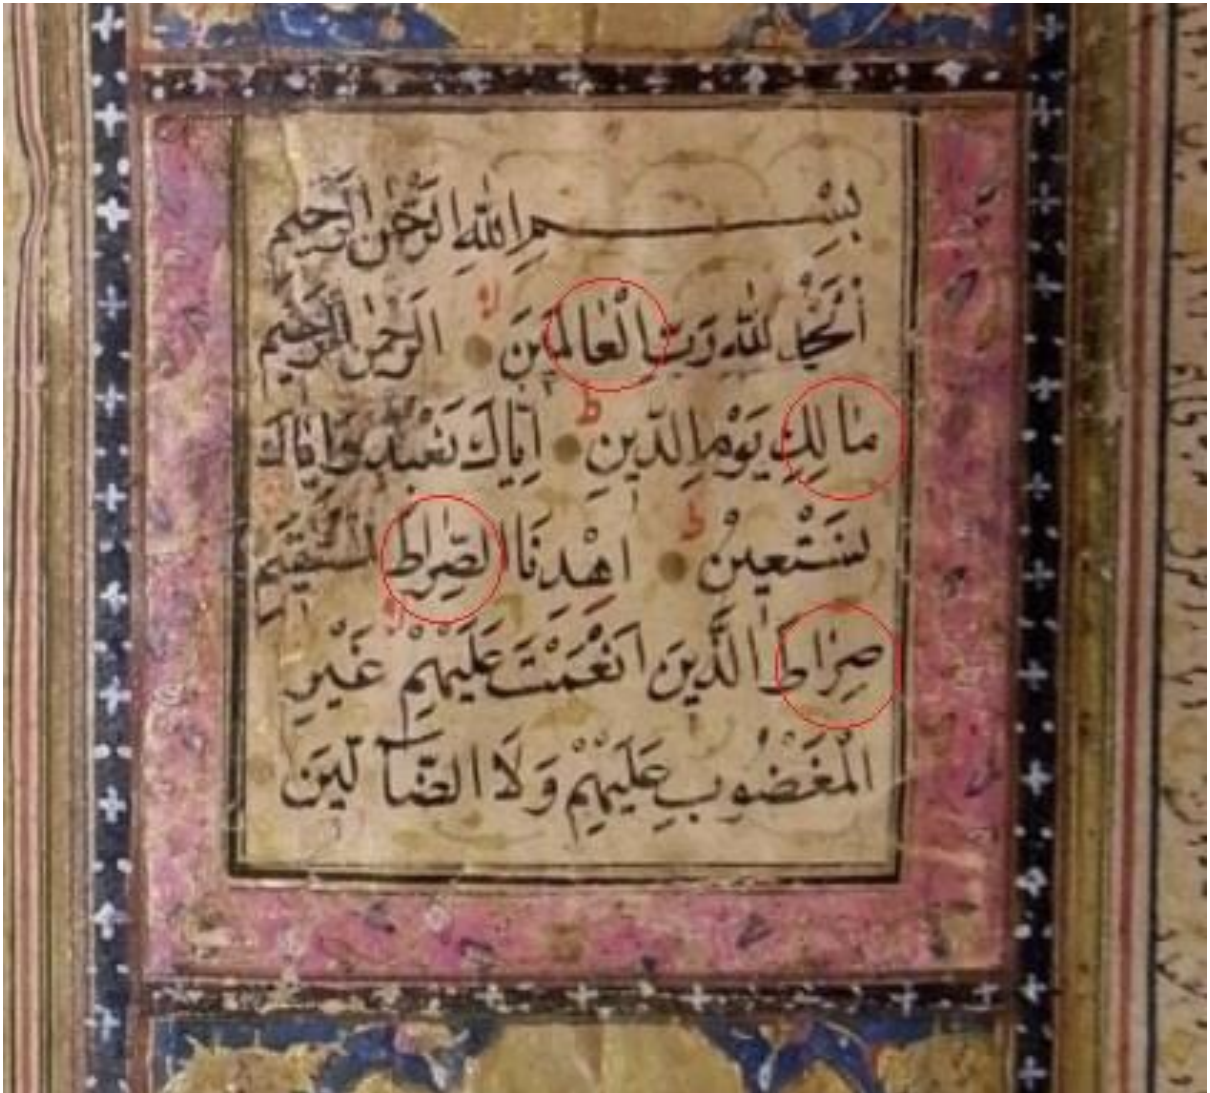 بِسْمِ اللهِ الرَّحْمٰنِ الرَّحِيمِ
اَلْحَمْدُ لِلّٰهِ رَبِّ الْعٰالَمِينَ لا الرَّحْمٰنِ الرَّحِيمِ
مٰالِكِ يَوْمِ الدِّينِ ط اِيّٰاكَ نَعْبُدُ وَاِيّٰاكَ
نَسْتَعِينُ ط اِهْدِنَا الصِّرٰاطَ الْمُسْتَقِيمَ
صِرٰاطَ الَّذِينَ اَنْعَمْتَ عَلَيْهِمْ غَيْرِ
الْمَغْضُوبِ عَلَيْهِمْ وَلَا الضّٰٓالِّينَ